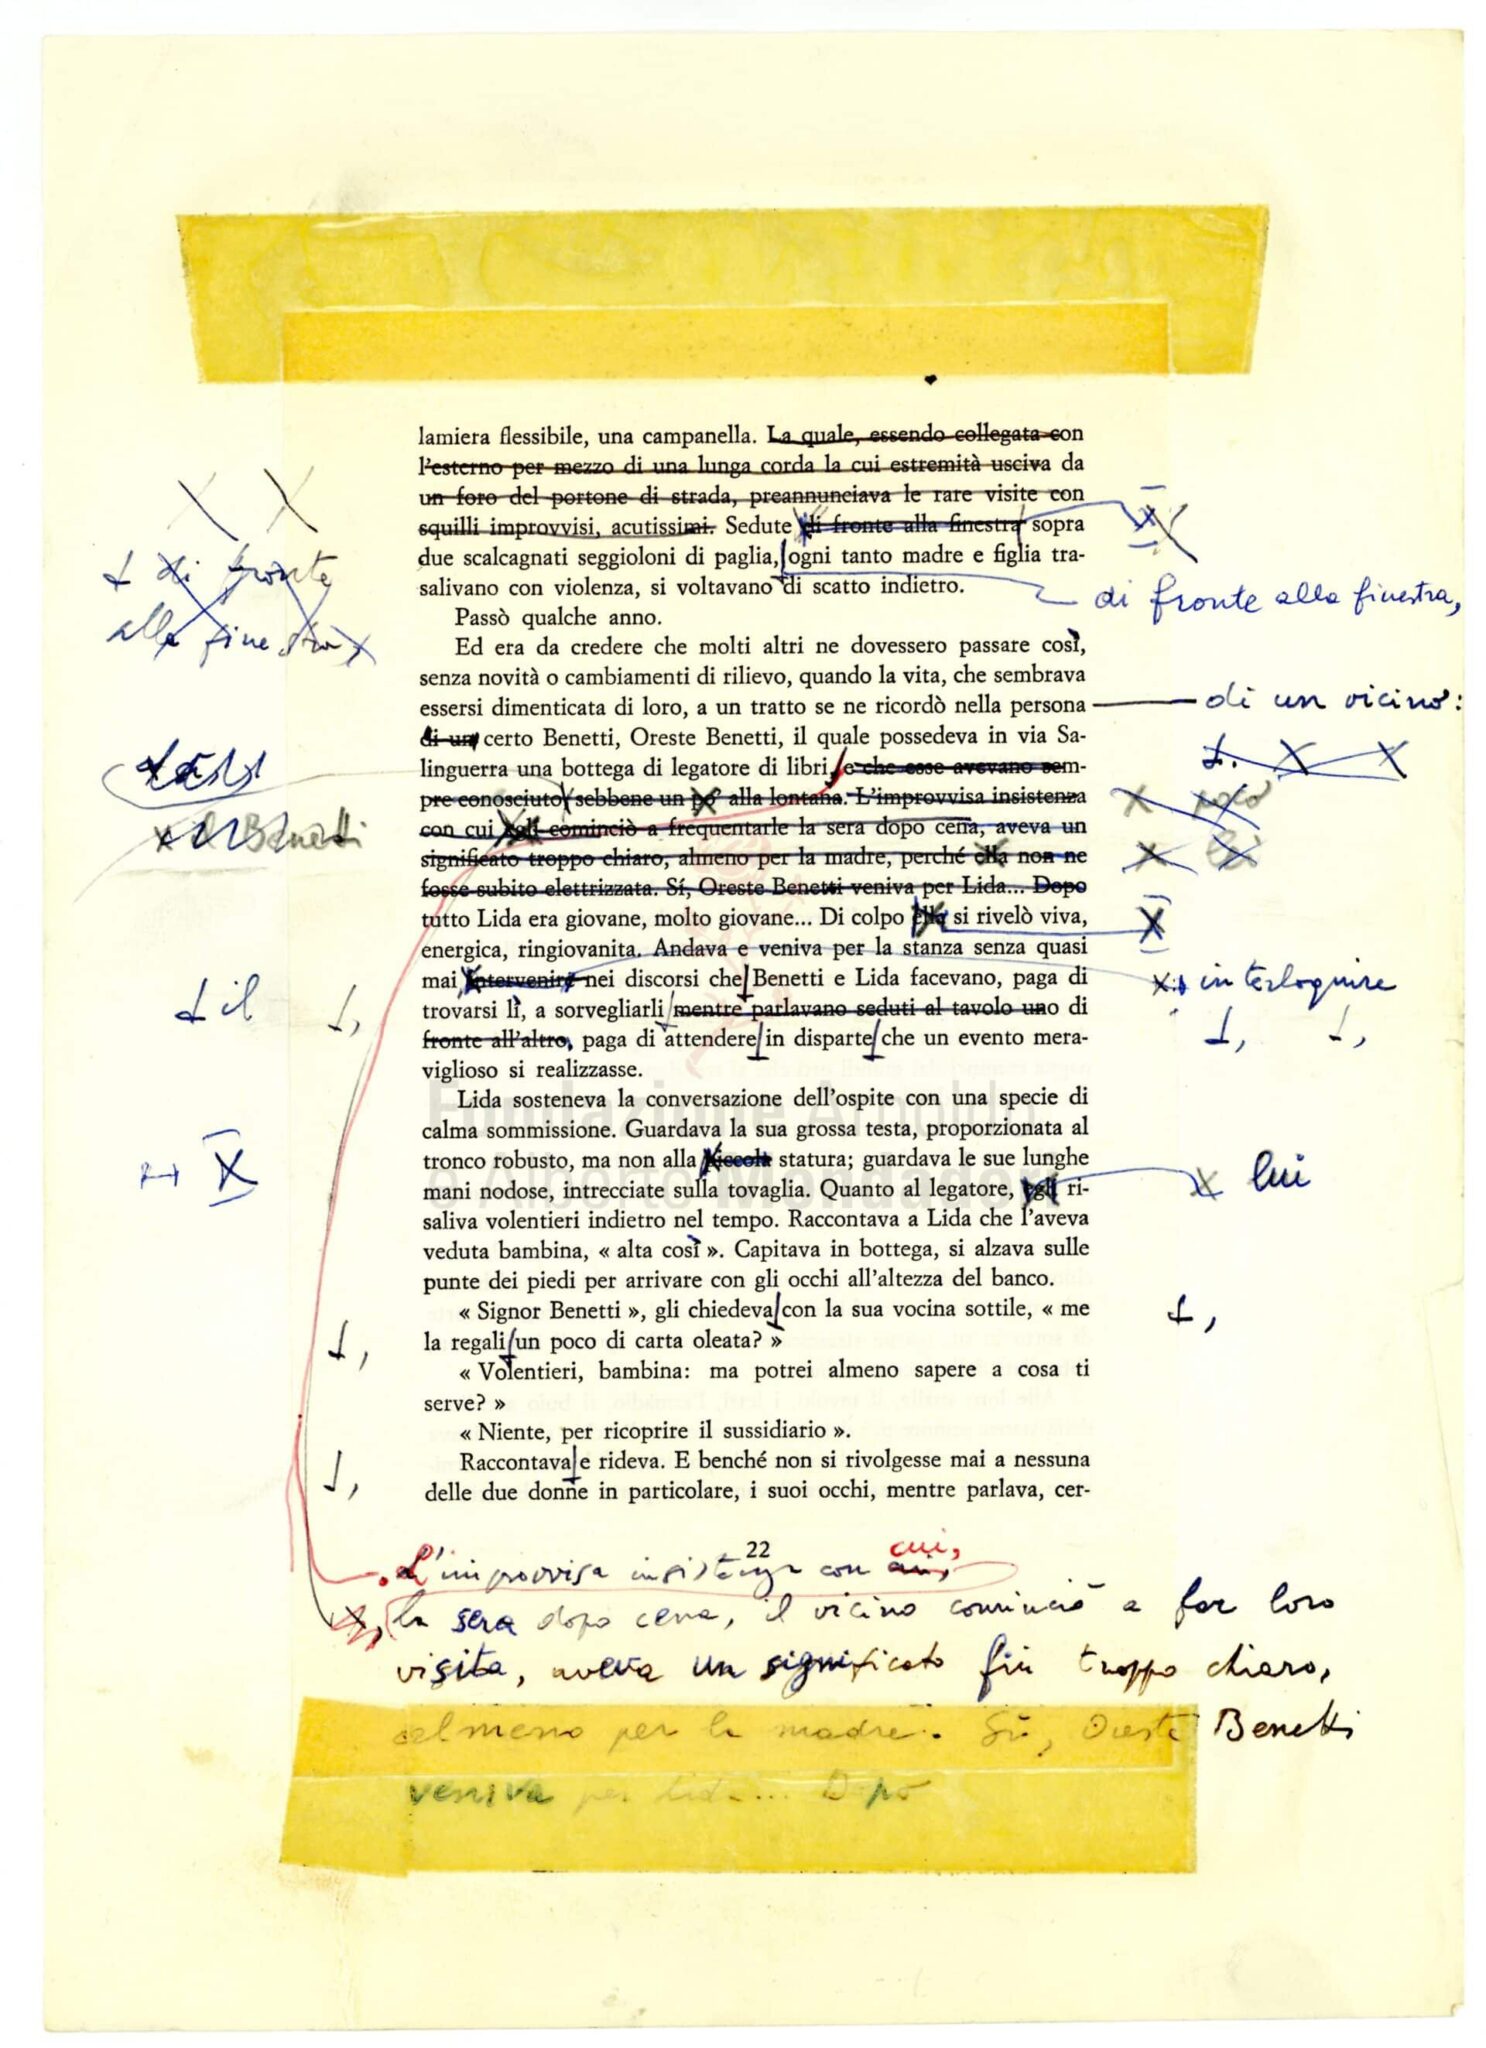 lamiera flessibile, una campanella. La quale, essendo collegata con
l'esterno per mezzo di una lunga corda la cui estremità usciva da
un foro del portone di strada, preannunciava le rare visite con
squilli improvvisi, acutissimi. Sedute di fronte alla finestra sopra
due scalcagnati seggioloni di paglia, ogni tanto madre e figlia tra-
di fronte
salivano con violenza, si voltavano di scatto indietro.
di fronte alla finestra,
alla finestra
Passò qualche anno.
Ed era da credere che molti altri ne dovessero passare così,
senza novità o cambiamenti di rilievo, quando la vita, che sembrava
essersi dimenticata di loro, a un tratto se ne ricordò nella persona
di un vicino:
di un certo Benetti, Oreste Benetti, il quale possedeva in via Sa-
linguerra una bottega di legatore di libri, e che esse avevano sem-
pre conosciuto, sebbene un po' alla lontana. L'improvvisa insistenza
poco
con cui egli cominciò a frequentarle la sera dopo cena, aveva un
Benetti
significato troppo chiaro, almeno per la madre, perché ella non ne
fosse subito elettrizzata. Sí, Oreste Benetti veniva per Lida... Dopo
tutto Lida era giovane, molto giovane... Di colpo ella si rivelò viva,
energica, ringiovanita. Andava e veniva per la stanza senza quasi
mai intervenire nei discorsi che Benetti e Lida facevano, paga di
interloquire
il
trovarsi lì, a sorvegliarli mentre parlavano seduti al tavolo uno di
fronte all'altro, paga di attendere in disparte che un evento mera-
viglioso si realizzasse.
Fondazione Arnoldo
Lida sosteneva la conversazione dell'ospite con una specie di
calma sommissione. Guardava la sua grossa testa, proporzionata al
tronco robusto, ma non alla piccola statura; guardava le sue lunghe
e Alberto Mondadori
mani nodose, intrecciate sulla tovaglia. Quanto al legatore, egli ri-
lui
saliva volentieri indietro nel tempo. Raccontava a Lida che l'aveva
veduta bambina, « alta così ». Capitava in bottega, si alzava sulle
punte dei piedi per arrivare con gli occhi all'altezza del banco.
« Signor Benetti », gli chiedeva con la sua vocina sottile, « me
la regali un poco di carta oleata? »
« Volentieri, bambina: ma potrei almeno sapere a cosa ti
serve? »
« Niente, per ricoprire il sussidiario ».
Raccontava e rideva. E benché non si rivolgesse mai a nessuna
delle due donne in particolare, i suoi occhi, mentre parlava, cer-
22
L'improvvisa insistenza con cui,
la sera dopo cena, il vicino cominciò a far loro
visita, aveva un significato fin troppo chiaro,
almeno per la madre. Sì, Oreste Benetti
veniva per Lida... Dopo